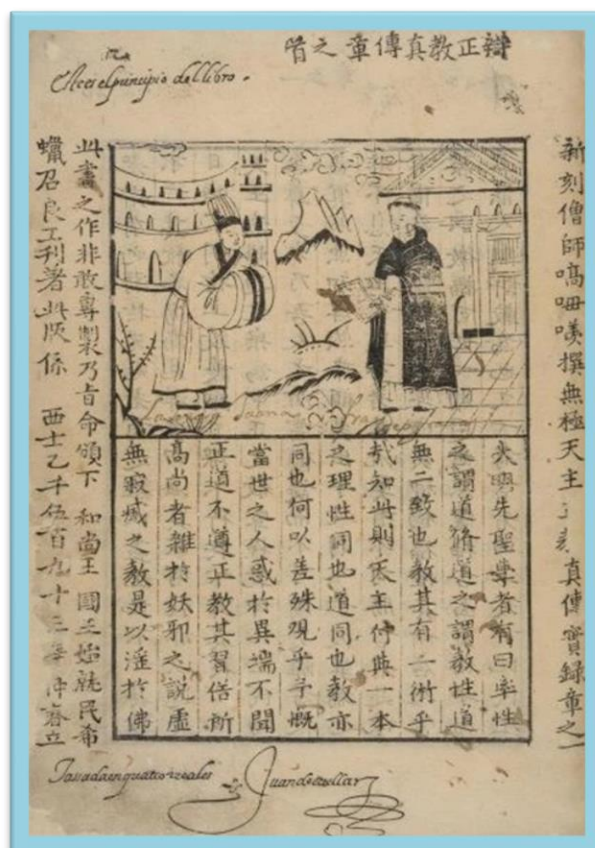 辯正教真傳章之首
Aca es el principio del libro.
新刻僧師嗃呣㗨撰無極天主正教真傳實錄章之一
大明先聖學者有曰率性
之謂道脩道之謂教性道
無二致也教其有二術乎
哉知此則天主付與一本
之理性同也道同也教亦
同也何以差殊觀乎予慨
當世之人惑於異端不聞
正道不遵正教其習俗所
高尚者雜於妖邪之說虛
無寂滅之教是以淫於佛
此書之作非敢專製乃旨命頒下 和尚王 國王始就民希
蠟召良工刊著此版係 西士乙千伍百九十三年仲春立
Tassada en quatro reales
Juan de Cuellar